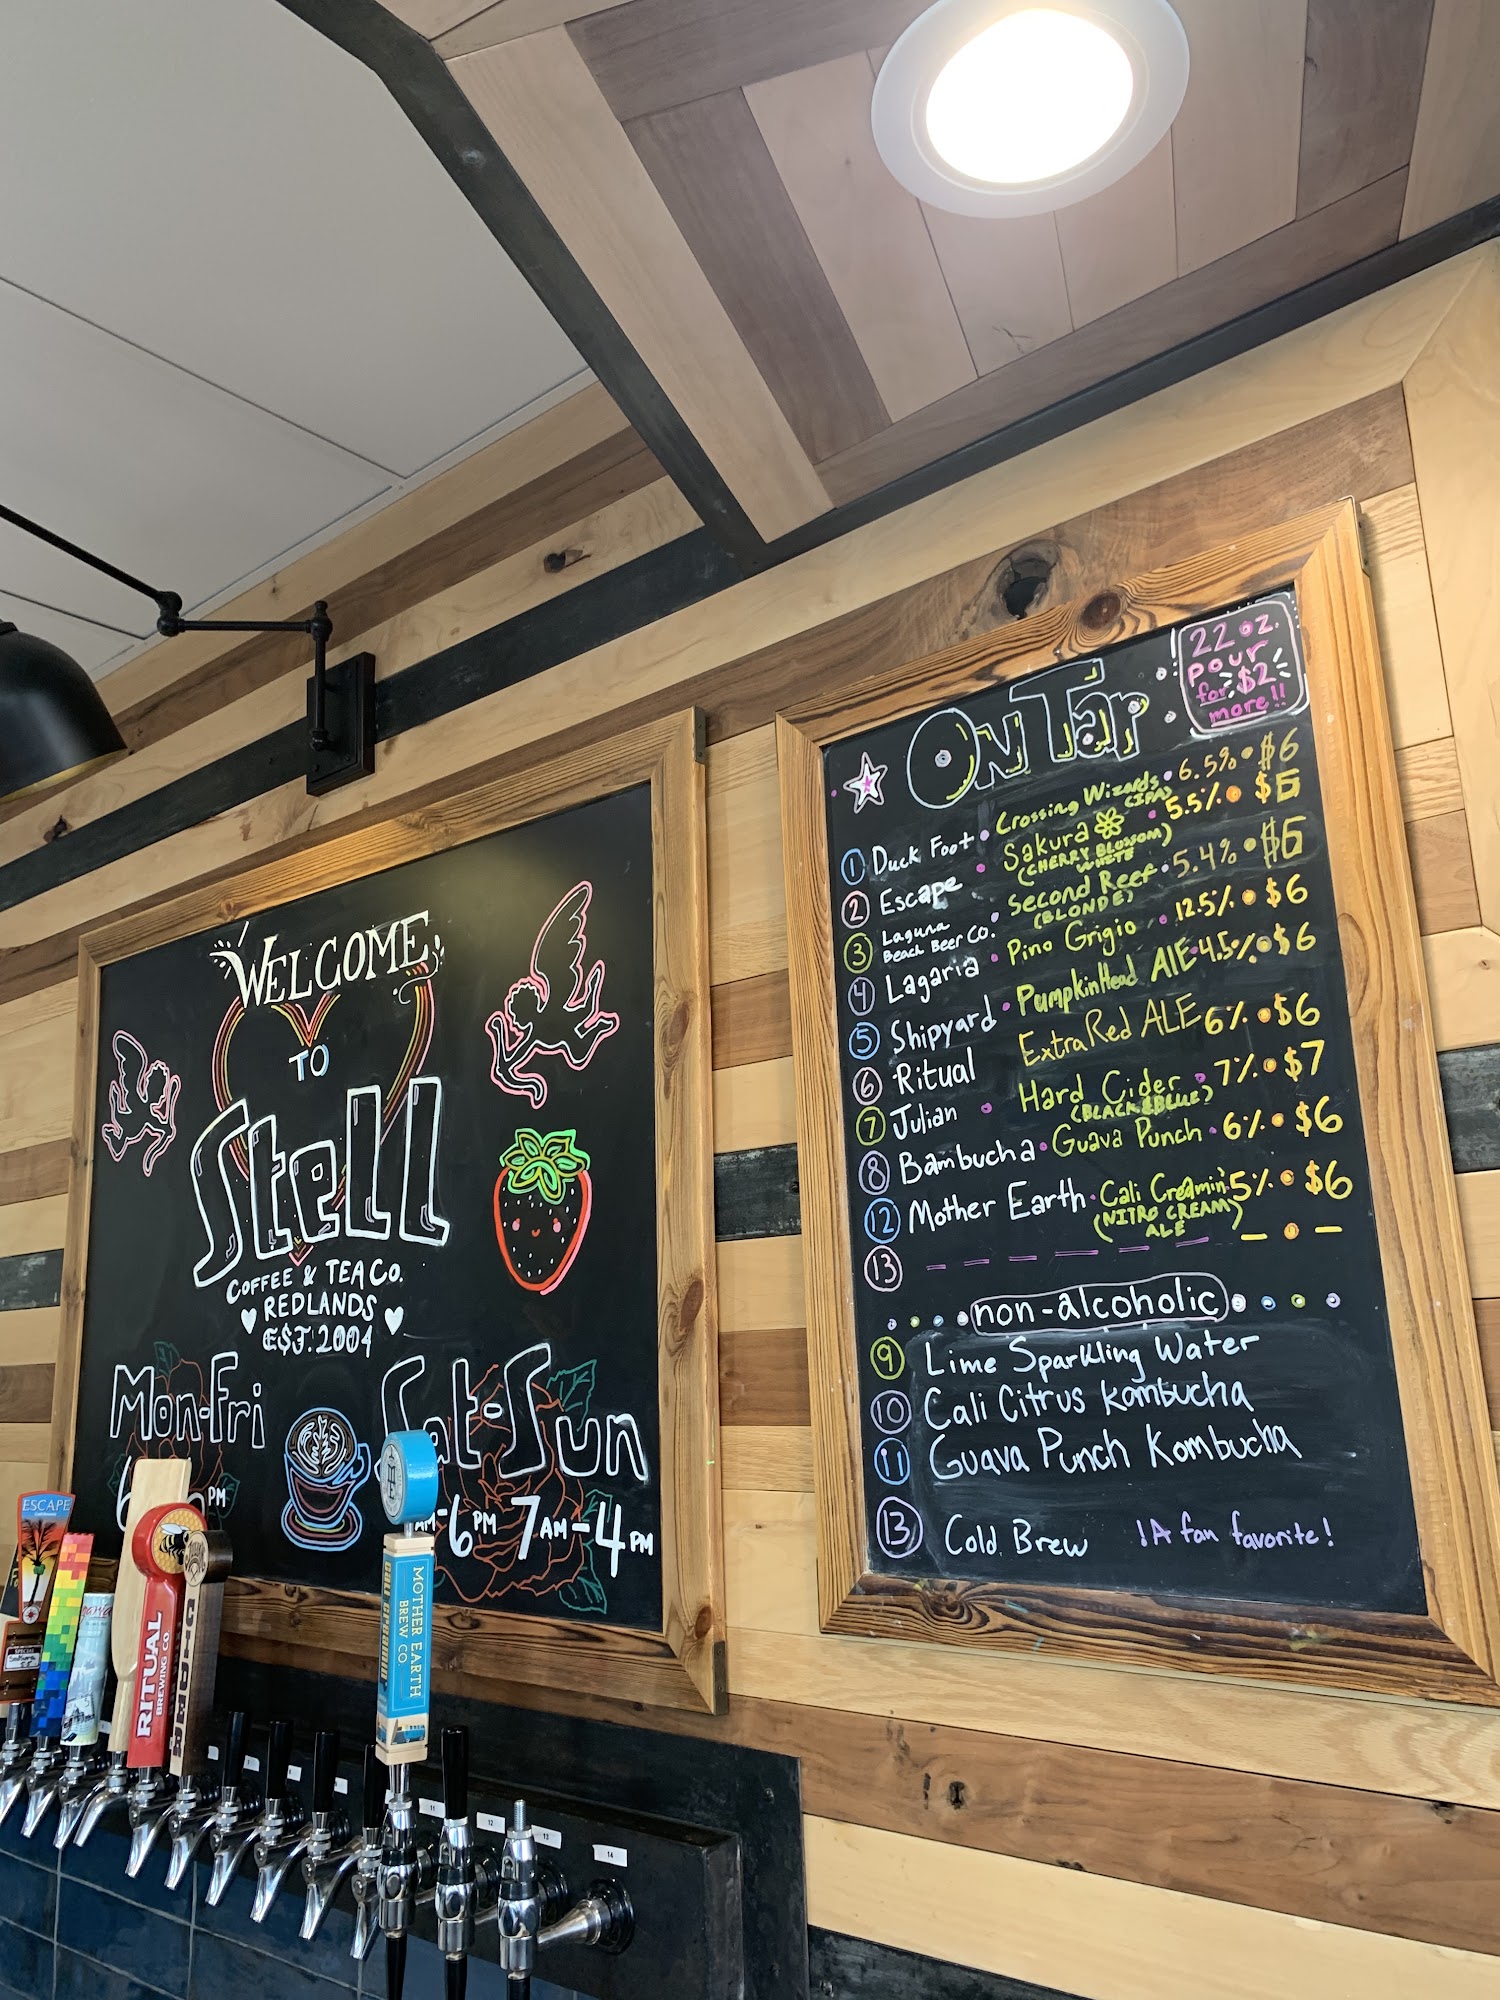 WELCOME
TO
Stell
COFFEE & TEA CO.
REDLANDS
EST. 2004
Mon-Fri
Sat-Sun
6 PM
AM-6PM 7AM-4PM
On Tap
22 oz.
pour
for $2
more!!
1 Duck Foot • Crossing Wizards • 6.5% • $6
(IPA)
2 Escape • Sakura • 5.5% • $6
(CHERRY BLOSSOM)
WHITE
3 Laguna
Beach Beer Co. • Second Reef • 5.4% • $6
(BLONDE)
4 Lagaria • Pino Grigio • 12.5% • $6
5 Shipyard • PumpkinHead AlE • 4.5% • $6
6 Ritual Extra Red ALE 6% • $6
7 Julian • Hard Cider • 7% • $7
(BLACK&BLUE)
8 Bambucha • Guava Punch • 6% • $6
12 Mother Earth • Cali Creamin' 5% • $6
(NITRO CREAM)
ALE
13 — — — — — — — • —
non-alcoholic
9 Lime Sparkling Water
10 Cali Citrus Kombucha
11 Guava Punch Kombucha
13 Cold Brew !A fan favorite!
ESCAPE
RITUAL
BREWING CO
MOTHER EARTH
BREW CO
CALI CREAMIN'
11
12
13
14